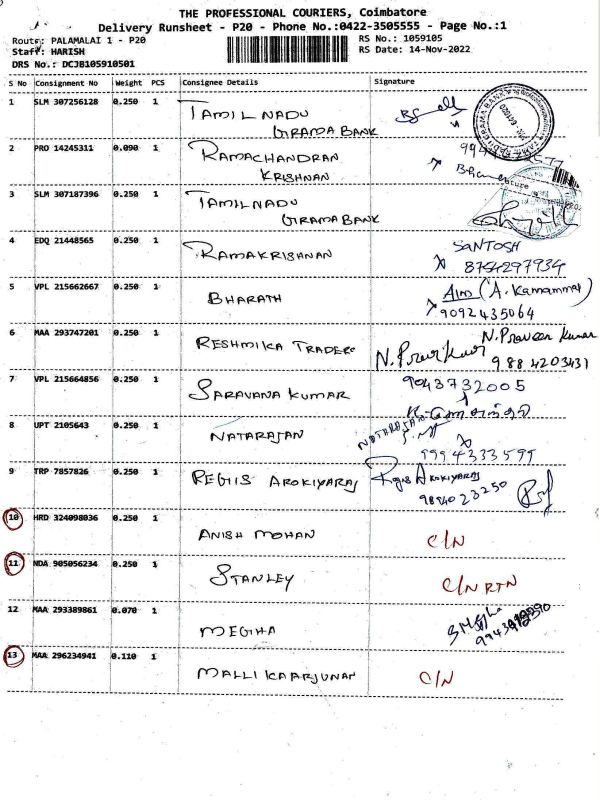 THE PROFESSIONAL COURIERS, Coimbatore
Delivery Runsheet - P20 - Phone No.:0422-3505555 - Page No.:1
Route: PALAMALAI 1 - P20
RS No.: 1059105
Staff: HARISH
RS Date: 14-Nov-2022
DRS No.: DCJB105910501
S No Consignment No Weight PCS Consignee Details Signature
1 SLM 307256128 0.250 1 TAMILNADU
GRAMA BANK
2 PRO 14245311 0.090 1 RAMACHANDRAN
KRISHNAN
3 SLM 307187396 0.250 1 TAMILNADU
GRAMA BANK
4 EDQ 21448565 0.250 1 RAMAKRISHNAN SANTOSH
8754297934
5 VPL 215662667 0.250 1 BHARATH (A. Kanammal)
9092435064
6 MAA 293747201 0.250 1 RESHMIKA TRADERS N. Praveen Kumar
9884203431
7 VPL 215664856 0.250 1 SARAVANA KUMAR 9043732005
8 UPT 2105643 0.250 1 NATARAJAN NATARAJAN
9994333599
9 TRP 7857826 0.250 1 REGIS AROKIYARAJ Regis AROKIYARAJ
9894023250
10 HRD 324098036 0.250 1 ANISH MOHAN C/N
11 NDA 905056234 0.250 1 STANLEY C/N RTN
12 MAA 293389861 0.070 1 MEGHA
13 MAA 296234941 0.110 1 MALLIKAARJUNAN C/N